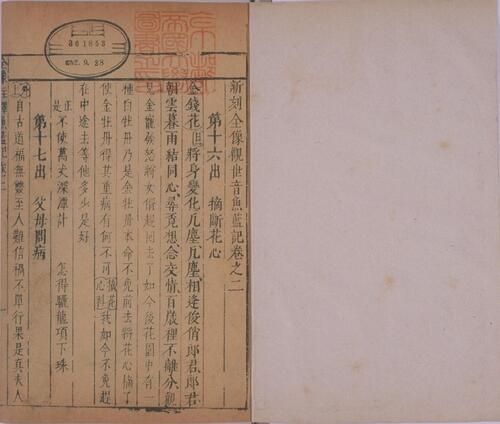 新刻全像觀世音魚藍記卷之二
第十六出 摘斷花心
金錢花旦將身變化凡塵凡塵相逢俊俏郎君郎君
朝雲暮雨結同心㝷竟想念交情百歲裡不離分
是金寵嗔怒將女俏趕回去了如今後花園中有一
種白牡丹乃是金牡丹本命不免前去將花心摘了
使金牡丹得其重病有何不可摘花心科我如今不免趕
在中途主等他多少是好
正是不使萬丈深潭計 怎得驪龍項下珠
第十七出 父母問病
外上自古道福無雙至人難信禍不單行果是真夫人
361853
9.28